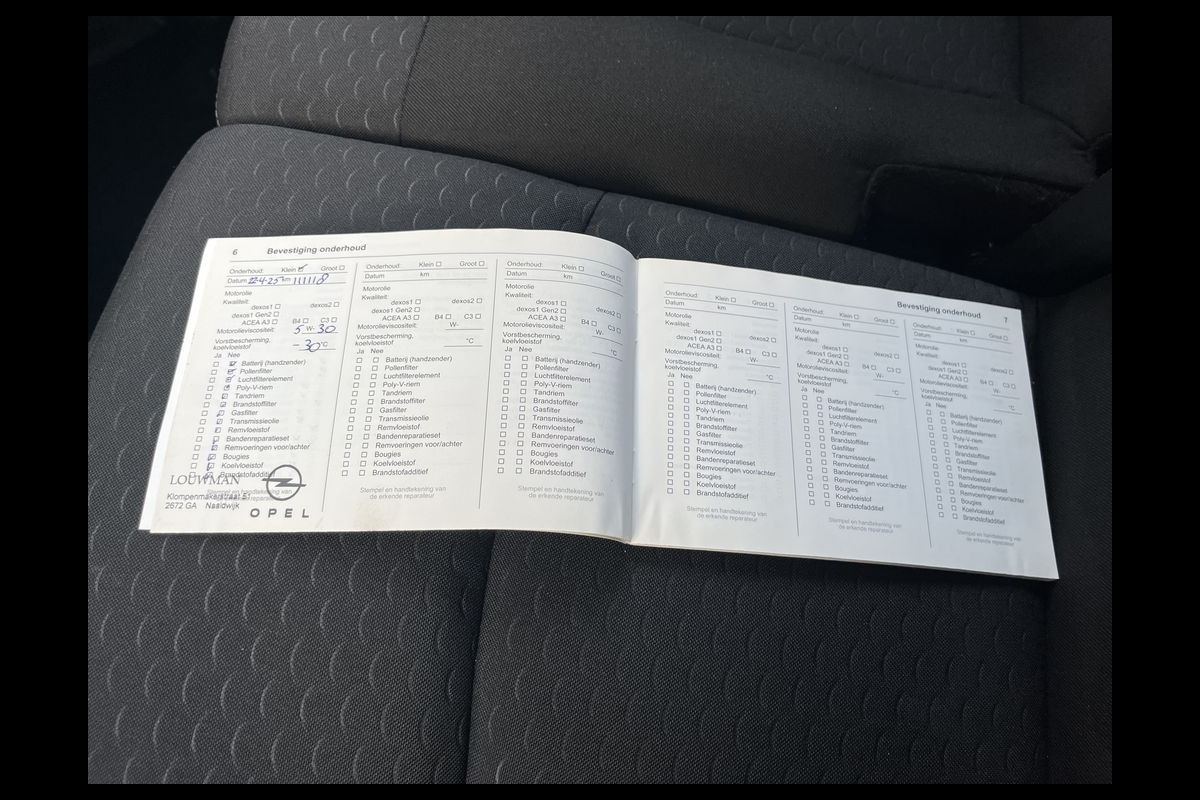 6 Bevestiging onderhoud
Onderhoud: Klein Groot
Datum 22-4-25 km 111118
Motorolie
Kwaliteit:
dexos1 dexos2
dexos1 Gen2
ACEA A3 B4 C3
Motorolieviscositeit: 5 W- 30
Vorstbescherming,
koelvloeistof -30 °C
Ja Nee
Batterij (handzender)
Pollenfilter
Luchtfilterelement
Poly-V-riem
Tandriem
Brandstoffilter
Gasfilter
Transmissieolie
Remvloeistof
Bandenreparatieset
Remvoeringen voor/achter
Bougies
Koelvloeistof
Brandstofadditief
LOUWMAN
Klompenmakerstraat 51
2672 GA Naaldwijk
OPEL
Onderhoud: Klein Groot
Datum km
Motorolie
Kwaliteit:
dexos1 dexos2
dexos1 Gen2
ACEA A3 B4 C3
Motorolieviscositeit: W-
Vorstbescherming,
koelvloeistof °C
Ja Nee
Batterij (handzender)
Pollenfilter
Luchtfilterelement
Poly-V-riem
Tandriem
Brandstoffilter
Gasfilter
Transmissieolie
Remvloeistof
Bandenreparatieset
Remvoeringen voor/achter
Bougies
Koelvloeistof
Brandstofadditief
Stempel en handtekening van
de erkende reparateur
Onderhoud: Klein Groot
Datum km
Motorolie
Kwaliteit:
dexos1 dexos2
dexos1 Gen2
ACEA A3 B4 C3
Motorolieviscositeit: W-
Vorstbescherming,
koelvloeistof °C
Ja Nee
Batterij (handzender)
Pollenfilter
Luchtfilterelement
Poly-V-riem
Tandriem
Brandstoffilter
Gasfilter
Transmissieolie
Remvloeistof
Bandenreparatieset
Remvoeringen voor/achter
Bougies
Koelvloeistof
Brandstofadditief
Stempel en handtekening van
de erkende reparateur
Bevestiging onderhoud 7
Onderhoud: Klein Groot
Datum km
Motorolie
Kwaliteit:
dexos1 dexos2
dexos1 Gen2
ACEA A3 B4 C3
Motorolieviscositeit: W-
Vorstbescherming,
koelvloeistof °C
Ja Nee
Batterij (handzender)
Pollenfilter
Luchtfilterelement
Poly-V-riem
Tandriem
Brandstoffilter
Gasfilter
Transmissieolie
Remvloeistof
Bandenreparatieset
Remvoeringen voor/achter
Bougies
Koelvloeistof
Brandstofadditief
Stempel en handtekening van
de erkende reparateur
Onderhoud: Klein Groot
Datum km
Motorolie
Kwaliteit:
dexos1 dexos2
dexos1 Gen2
ACEA A3 B4 C3
Motorolieviscositeit: W-
Vorstbescherming,
koelvloeistof °C
Ja Nee
Batterij (handzender)
Pollenfilter
Luchtfilterelement
Poly-V-riem
Tandriem
Brandstoffilter
Gasfilter
Transmissieolie
Remvloeistof
Bandenreparatieset
Remvoeringen voor/achter
Bougies
Koelvloeistof
Brandstofadditief
Stempel en handtekening van
de erkende reparateur
Onderhoud: Klein Groot
Datum km
Motorolie
Kwaliteit:
dexos1 dexos2
dexos1 Gen2
ACEA A3 B4 C3
Motorolieviscositeit: W-
Vorstbescherming,
koelvloeistof °C
Ja Nee
Batterij (handzender)
Pollenfilter
Luchtfilterelement
Poly-V-riem
Tandriem
Brandstoffilter
Gasfilter
Transmissieolie
Remvloeistof
Bandenreparatieset
Remvoeringen voor/achter
Bougies
Koelvloeistof
Brandstofadditief
Stempel en handtekening van
de erkende reparateur